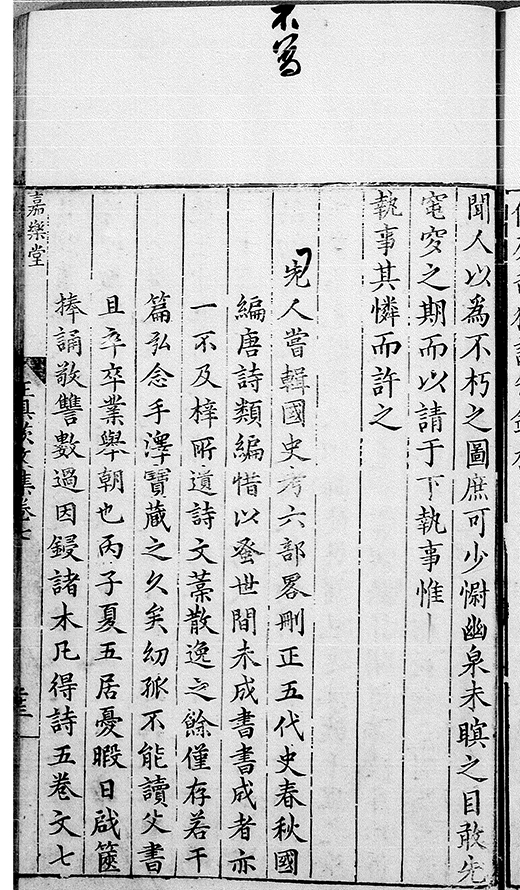 不寫
聞人以為不朽之圖庶可少慰幽泉未瞑之目敢先
窀穸之期而以請于下執事惟
執事其憐而許之
先人嘗輯國史考六部畧刪正五代史春秋國
編唐詩類編惜以蚤世間未成書書成者亦
一不及梓所遺詩文藁散逸之餘僅存若干
篇弘念手澤寶藏之久矣幼孤不能讀父書
且卒卒業舉朝也丙子夏五居憂暇日啟篋
捧誦敬讐數過因鋟諸木凡得詩五卷文七
嘉樂堂
文集卷七